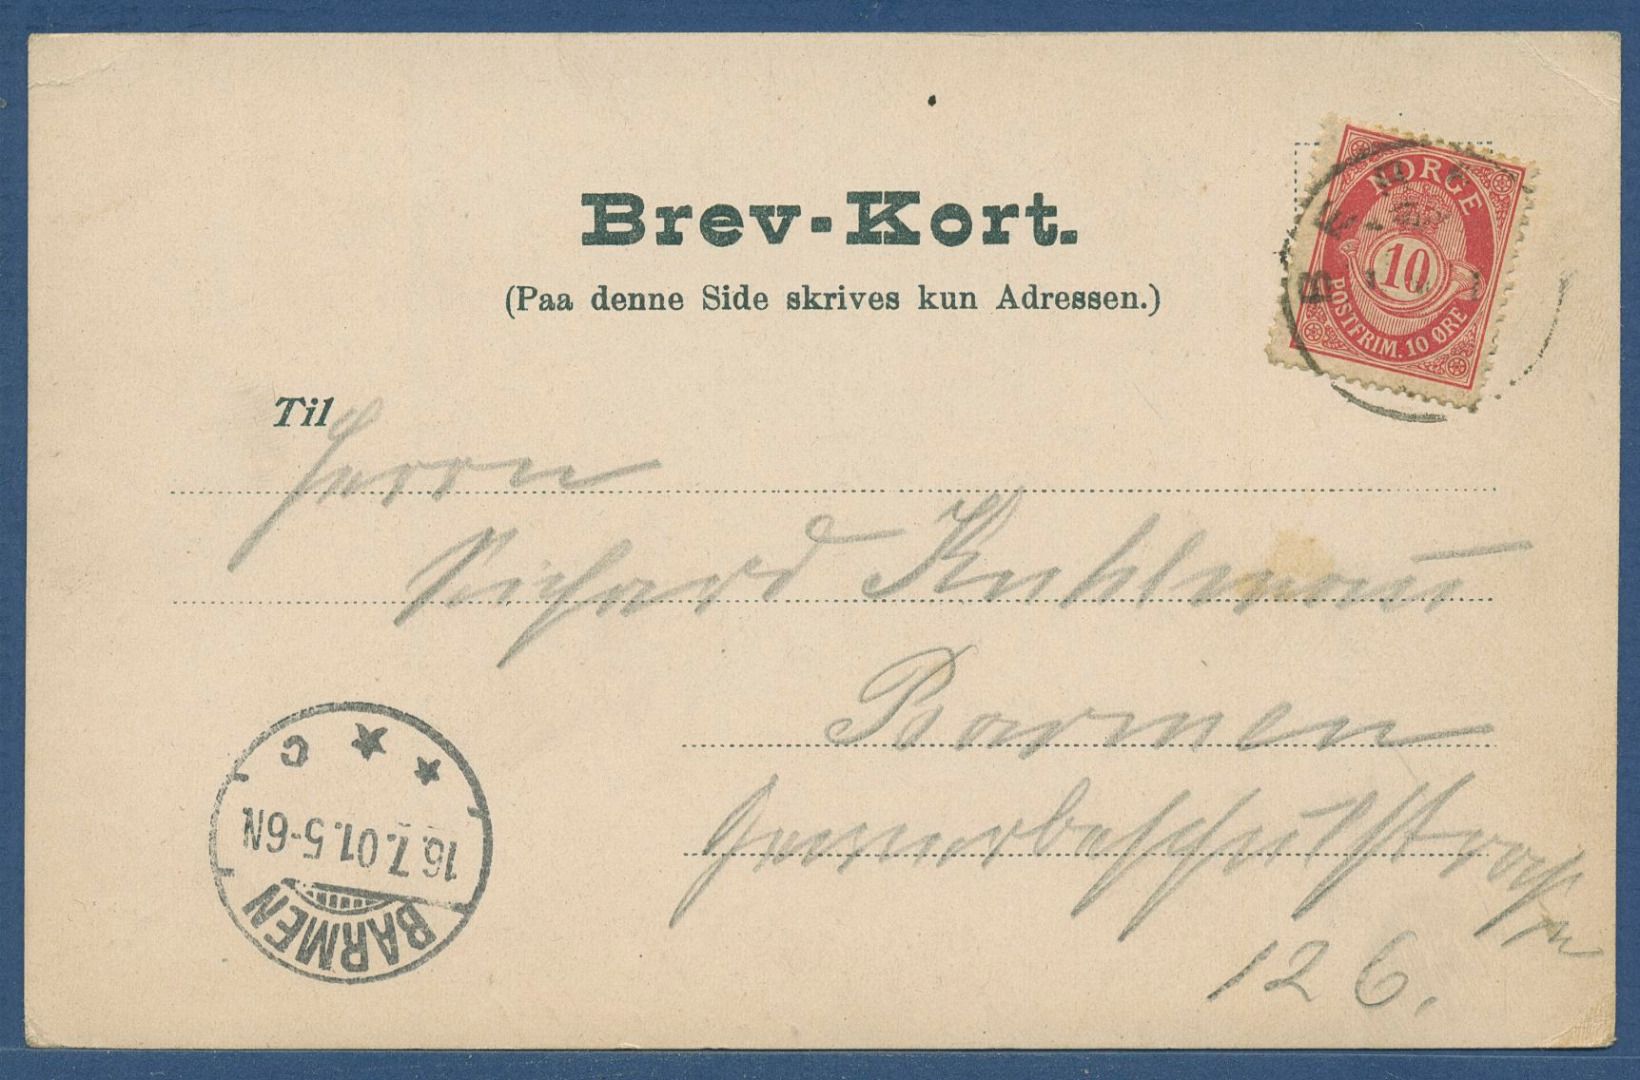 Brev-Kort.
(Paa denne Side skrives kun Adressen.)
NORGE
10
POSTFRIM. 10 ØRE
Til
Herrn
Richard Kuhlmann
Barmen
Gewerbeschulstrasse
126.
BARMEN
16.7.01.5-6N
C